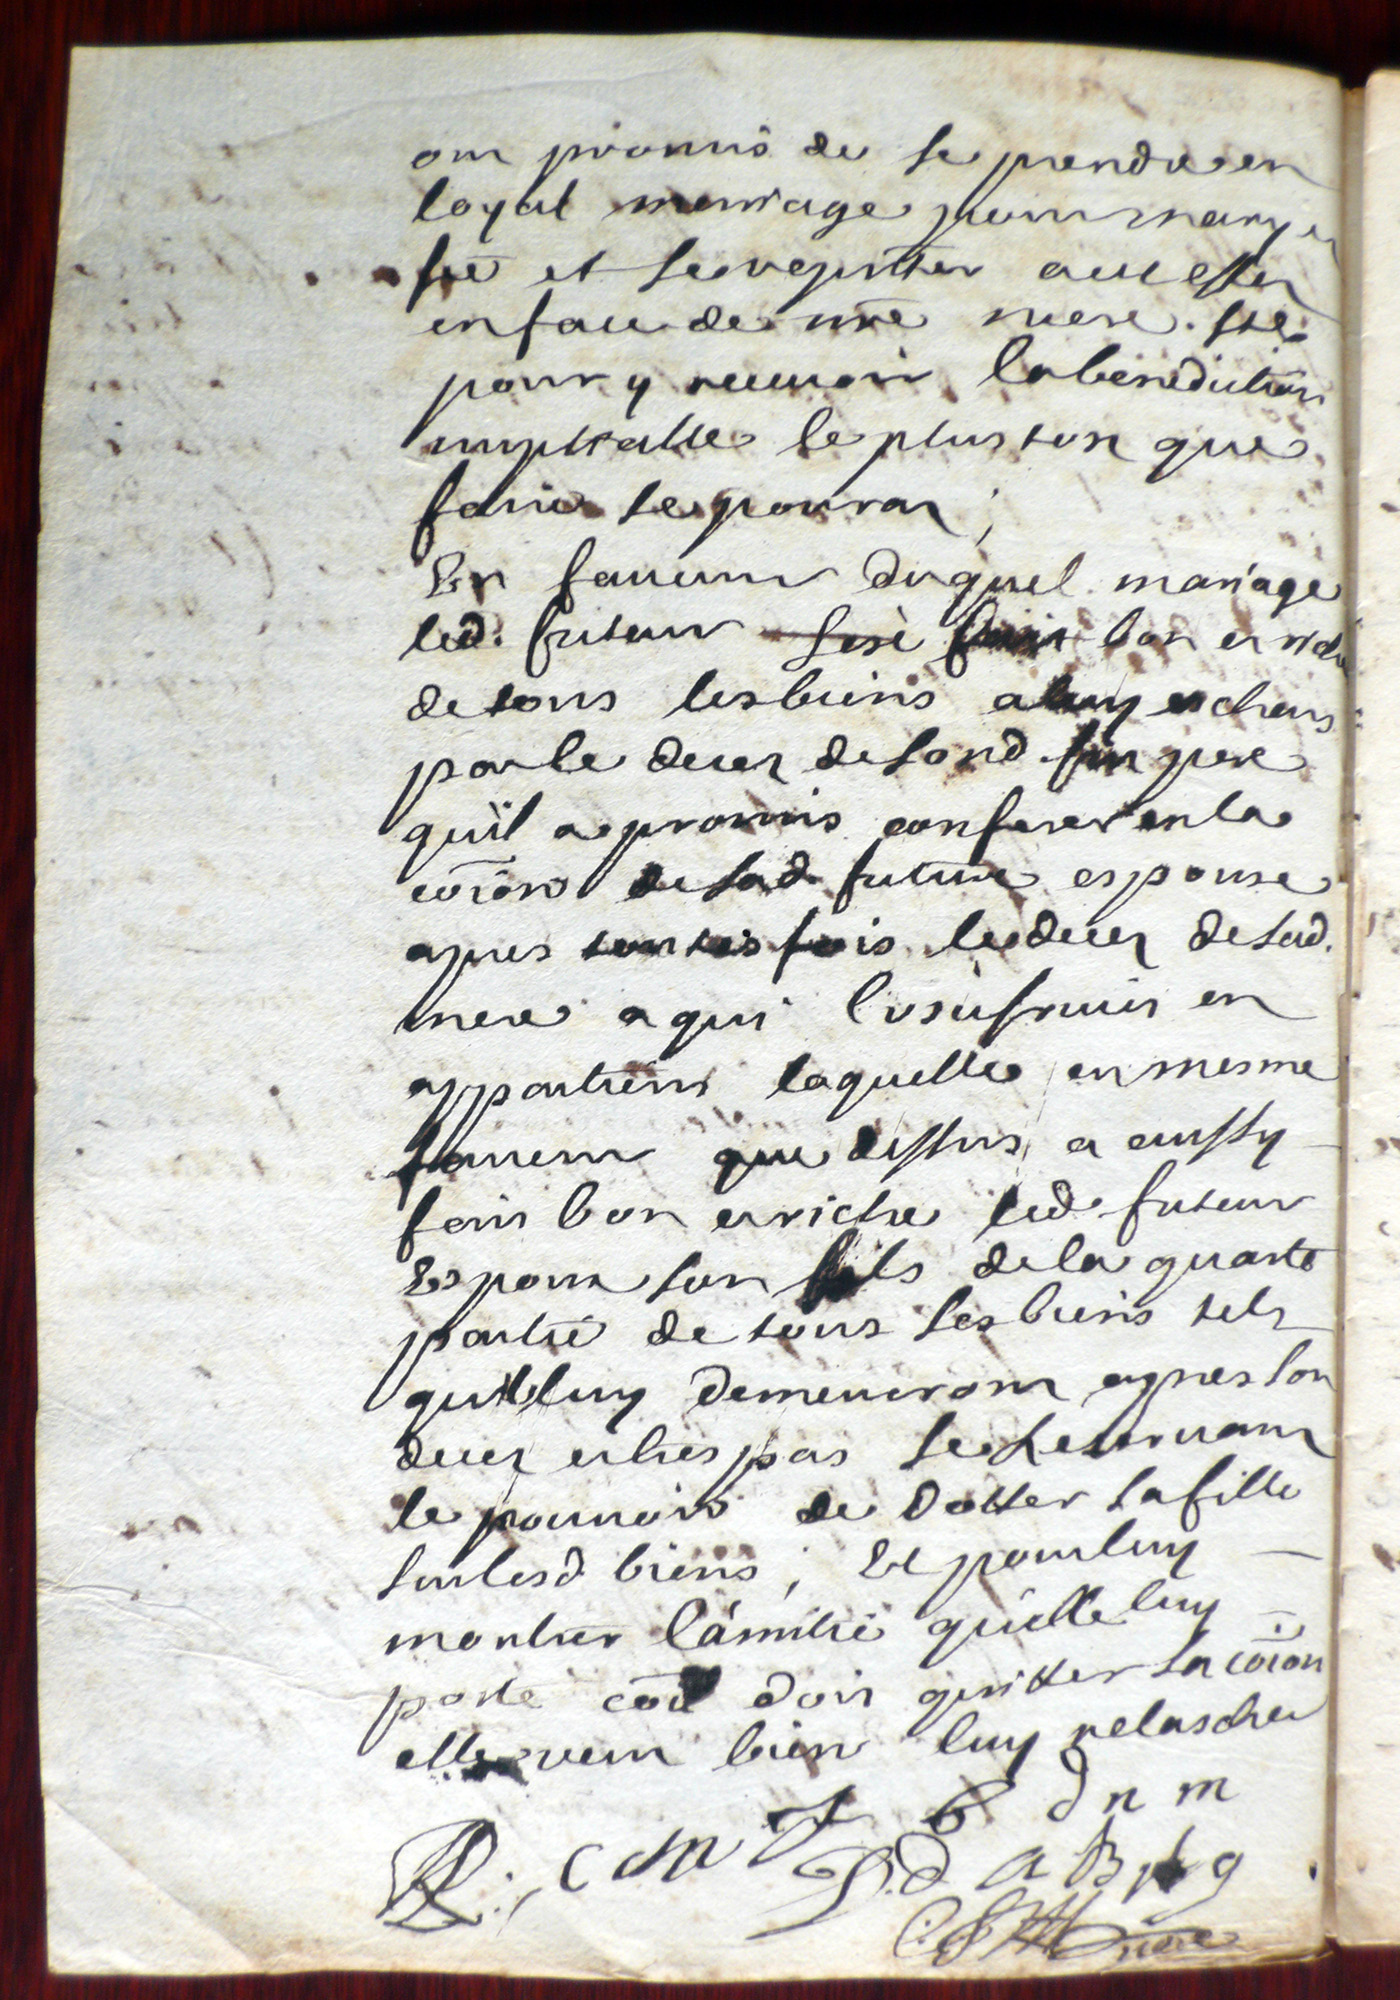 ont promis de se prendre en
loyal mariage pour mary et
fẽ et se representer a cet effet
en face de nrẽ mere Ste
pour y recevoir la benediction
nuptialle le plus tost que
faire se pourat ;
En faveur duquel mariage
led. futeur bon et riche
de tous les biens a luy escheus
par le decez de sond. fut pere
qu'il a promis conferer en la
cõion de lad. future espouse
apres touttes fois le decez de sad.
mere a qui l'usufruit en
appartient laquelle en mesme
faveur que dessus a aussy
fait bon et riche led. futeur
Espoux son fils de la quarte
partie de tous ses biens tels
qu'il luy demeureront apres son
decez et trespas se reservant
le pouvoir de dotter sa fille
sur lesd biens ; Et pour luy
montrer l'amitié qu'elle luy
porte cõe doit quitter sa cõion
elle veut bien luy relascher
C d M J B d n m
J. d a B p g